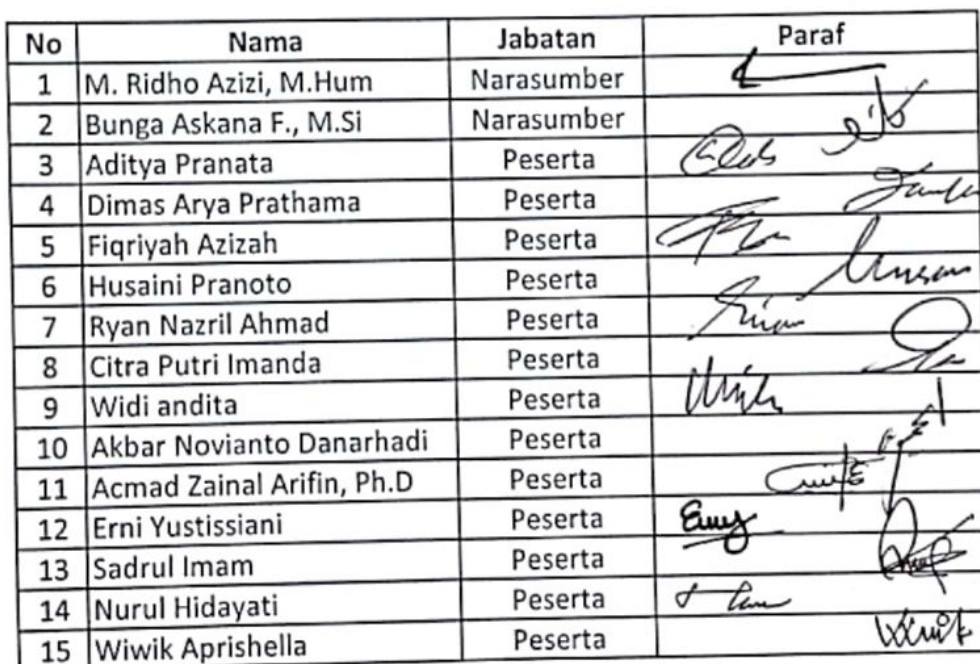 No Nama Jabatan Paraf
1 M. Ridho Azizi, M.Hum Narasumber
2 Bunga Askana F., M.Si Narasumber
3 Aditya Pranata Peserta
4 Dimas Arya Prathama Peserta
5 Fiqriyah Azizah Peserta
6 Husaini Pranoto Peserta
7 Ryan Nazril Ahmad Peserta
8 Citra Putri Imanda Peserta
9 Widi andita Peserta
10 Akbar Novianto Danarhadi Peserta
11 Acmad Zainal Arifin, Ph.D Peserta
12 Erni Yustissiani Peserta
13 Sadrul Imam Peserta
14 Nurul Hidayati Peserta
15 Wiwik Aprishella Peserta